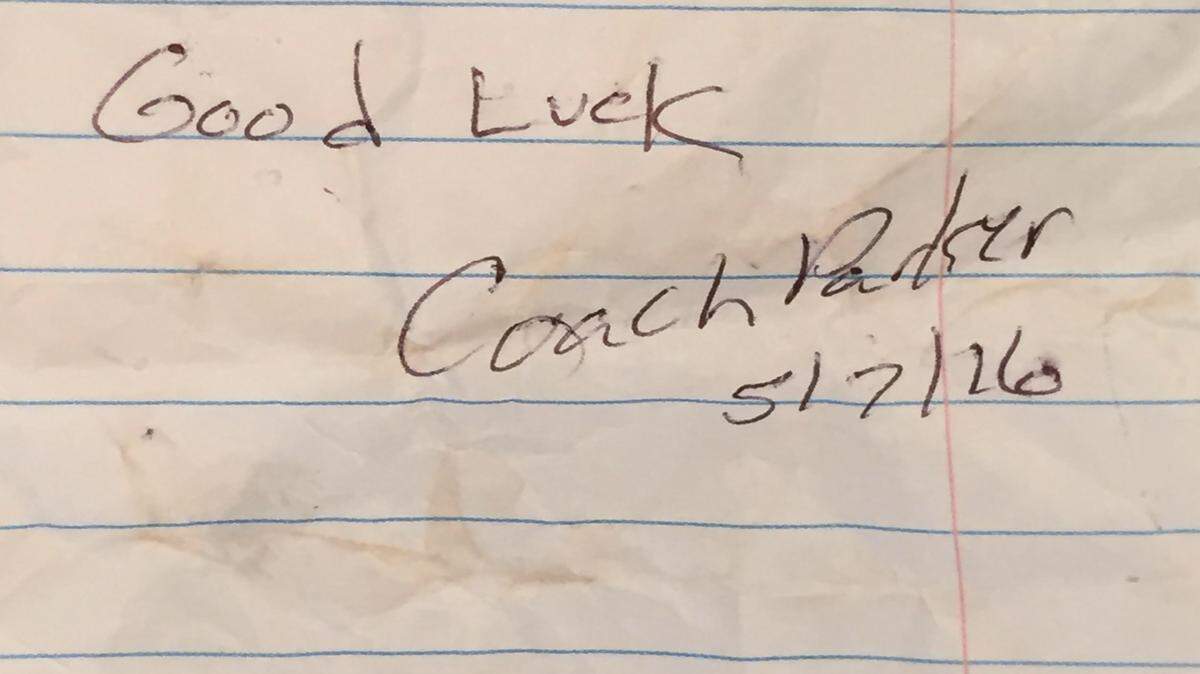 Good Luck
Coach Parker
5/7/26